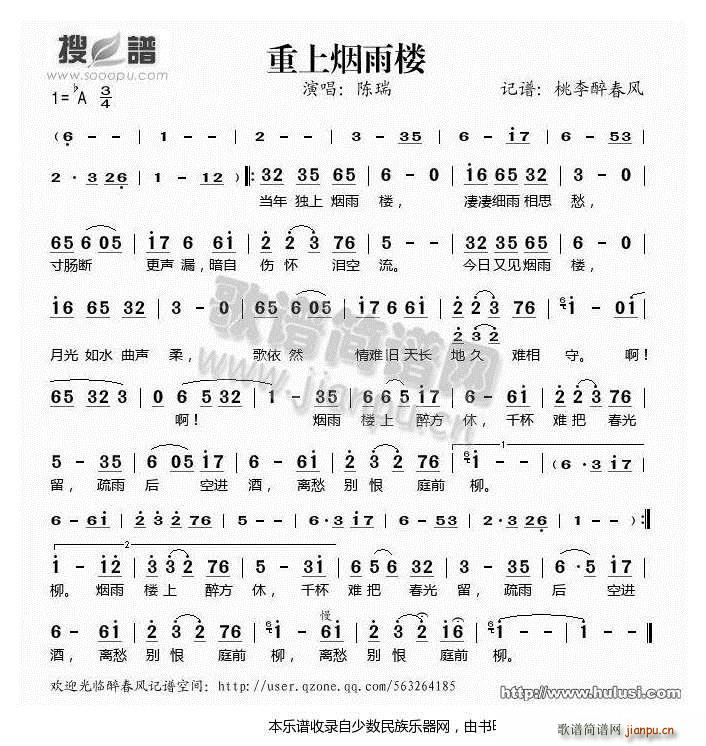 搜 谱
www.sooopu.com
重上烟雨楼
1=♭A 3/4
演唱：陈瑞 记谱：桃李醉春风
(6 - - | 1 - - | 2 - - | 3 - 35 | 6 - 17 | 6 - 53 |
2 · 3 26 | 1 - 12 ) ‖: 32 35 65 | 6 - 0 | 16 65 32 | 3 - 0 |
当年 独上 烟雨 楼， 凄凄细雨相思 愁，
65 6 05 | 17 6 61 | 2 2 3 76 | 5 - - | 32 35 65 | 6 - 0 |
寸肠断 更声 漏，暗自 伤 怀 泪空 流。 今日又见烟雨 楼，
16 65 32 | 3 - 0 | 65 6 05 | 17 6 61 | 2 2 3 76 | 6 1 - 01 |
2 3 2
月光 如水 曲声 柔， 歌依 然 情难旧天长 地久 难相 守。 啊！
65 32 3 | 0 6 5 32 | 1 - 35 | 6 6 5 17 | 6 - 61 | 2 2 3 76 |
啊！ 烟雨 楼上 醉方 休，千杯 难把 春光
1
5 - 35 | 6 05 17 | 6 - 61 | 2 3 2 76 | 6 1 - - | (6 · 3 17 |
留，疏雨 后 空进 酒，离愁 别恨 庭前 柳。
6 - 61 | 2 3 2 76 | 5 - - | 6 · 3 17 | 6 - 53 | 2 · 3 26 | 1 - - ) :‖
2
1 - 12 | 3 3 2 76 | 5 - 31 | 2 2 3 76 | 5 - 35 | 6 · 5 17 |
柳。 烟雨 楼上 醉方 休，千杯 难把 春光 留，疏雨 后 空进
慢
6 - 61 | 2 3 2 76 | 6 1 - 61 | 2 3 2 16 | 6 1 - - | 1 - - ‖
酒，离愁 别恨 庭前 柳，离愁 别恨 庭前 柳。
欢迎光临醉春风记谱空间：http://user.qzone.qq.com/563264185
http://www.hulusi.com
歌谱简谱网
www.jianpu.cn
本乐谱收录自少数民族乐器网，由书
歌谱简谱网
jianpu.cn